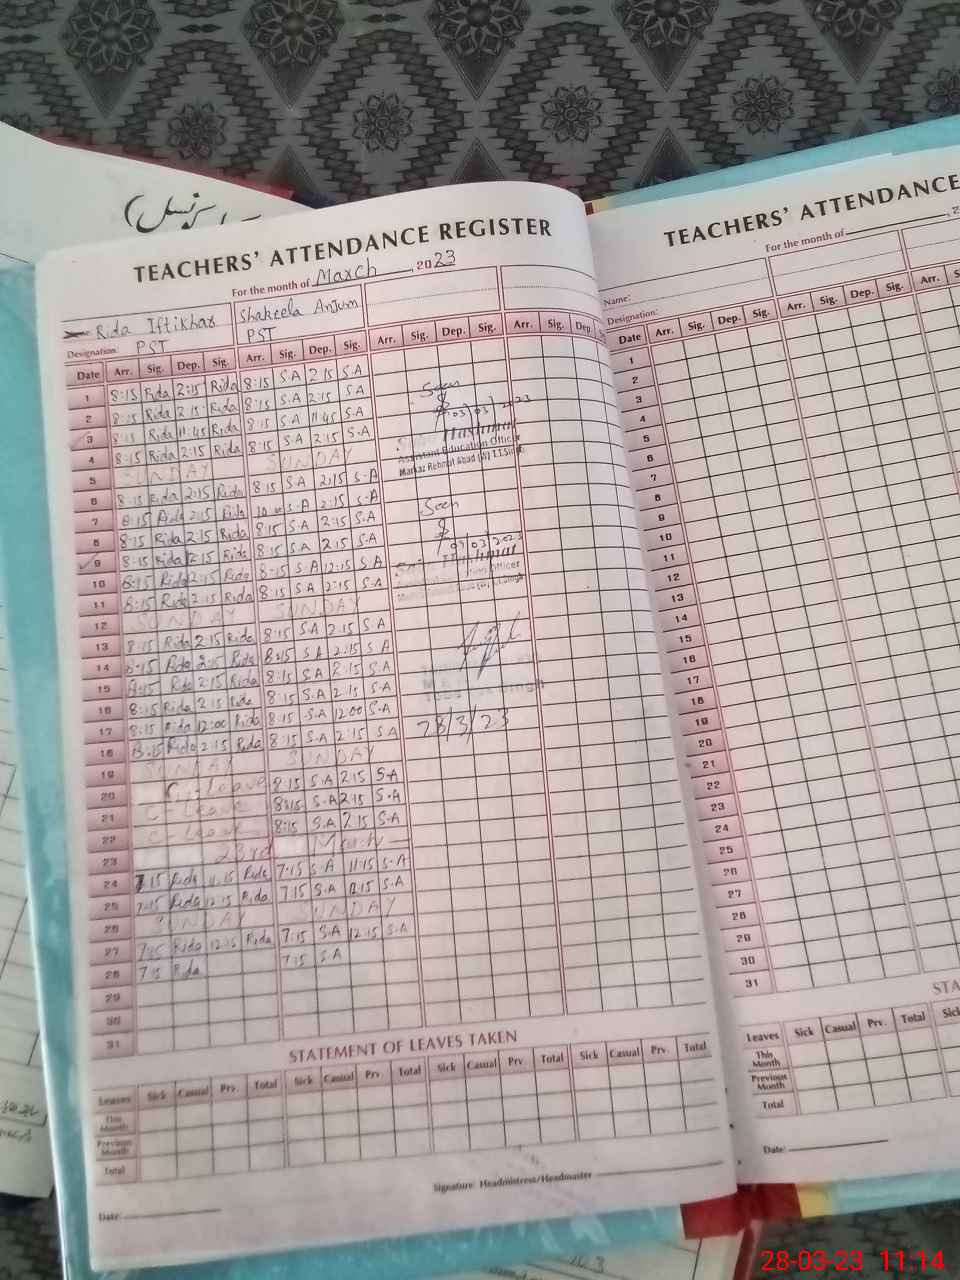 TEACHERS' ATTENDANCE REGISTER
For the month of March, 2023
Rida Iftikhar Shakeela Anjum
Designation: PST PST
Date Arr. Sig. Dep. Sig. Arr. Sig. Dep. Sig. Arr. Sig. Dep. Sig. Arr. Sig. Dep.
1 8:15 Rida 2:15 Rida 8:15 S.A 2:15 S.A
2 8:15 Rida 2:15 Rida 8:15 S.A 2:15 S.A
3 8:15 Rida 11:45 Rida 8:15 S.A 11:45 S.A
4 8:15 Rida 2:15 Rida 8:15 S.A 2:15 S.A
5 SUNDAY SUNDAY
6 8:15 Rida 2:15 Rida 8:15 S.A 2:15 S.A
7 8:15 Rida 2:15 Rida S.A 2:15 S.A
8 8:15 Rida 2:15 Rida 8:15 S.A 2:15 S.A
9 8:15 Rida 2:15 Rida 8:15 S.A 2:15 S.A
10 8:15 Rida Rida 8:15 S.A 12:15 S.A
11 8:15 Rida 2:15 Rida 8:15 S.A 2:15 S.A
12 SUNDAY SUNDAY
13 8:15 Rida 2:15 Rida 8:15 S.A 2:15 S.A
14 8:15 Rida 2:15 Rida 8:15 S.A 2:15 S.A
15 8:15 Rida 2:15 Rida 8:15 S.A 2:15 S.A
16 8:15 Rida 2:15 Rida 8:15 S.A 2:15 S.A
17 8:15 Rida 12:00 Rida 8:15 S.A 12:00 S.A
18 8:15 Rida 2:15 Rida 8:15 S.A 2:15 S.A
19 SUNDAY SUNDAY
20 C - Leave 8:15 S.A 2:15 S.A
21 C - Leave 8:15 S.A 2:15 S.A
22 C - Leave 8:15 S.A 2:15 S.A
23 23rd March
24 7:15 Rida 11:15 Rida 7:15 S.A 11:15 S.A
25 7:15 Rida 12:15 Rida 7:15 S.A 12:15 S.A
26 SUNDAY SUNDAY
27 7:15 Rida 12:15 Rida 7:15 S.A 12:15 S.A
28 7:15 Rida 7:15 S.A
29
30
31
Seen
03/03/2023
Hashmat
Assistant Education Officer
Seen
09/03/2023
Hashmat
28/3/23
STATEMENT OF LEAVES TAKEN
Leaves Sick Casual Prv. Total Sick Casual Prv. Total Sick Casual Prv. Total Sick Casual Prv. Total
This Month
Previous Month
Total
Signature: Headmistress/Headmaster
Date:
TEACHERS' ATTENDANCE
For the month of
Name:
Designation:
Date Arr. Sig. Dep. Sig. Arr. Sig. Dep. Sig. Arr. Sig.
1
2
3
4
5
6
7
8
9
10
11
12
13
14
15
16
17
18
19
20
21
22
23
24
25
26
27
28
29
30
31
STA
Leaves Sick Casual Prv. Total Sick
This Month
Previous Month
Total
Date:
28-03-23 11:14